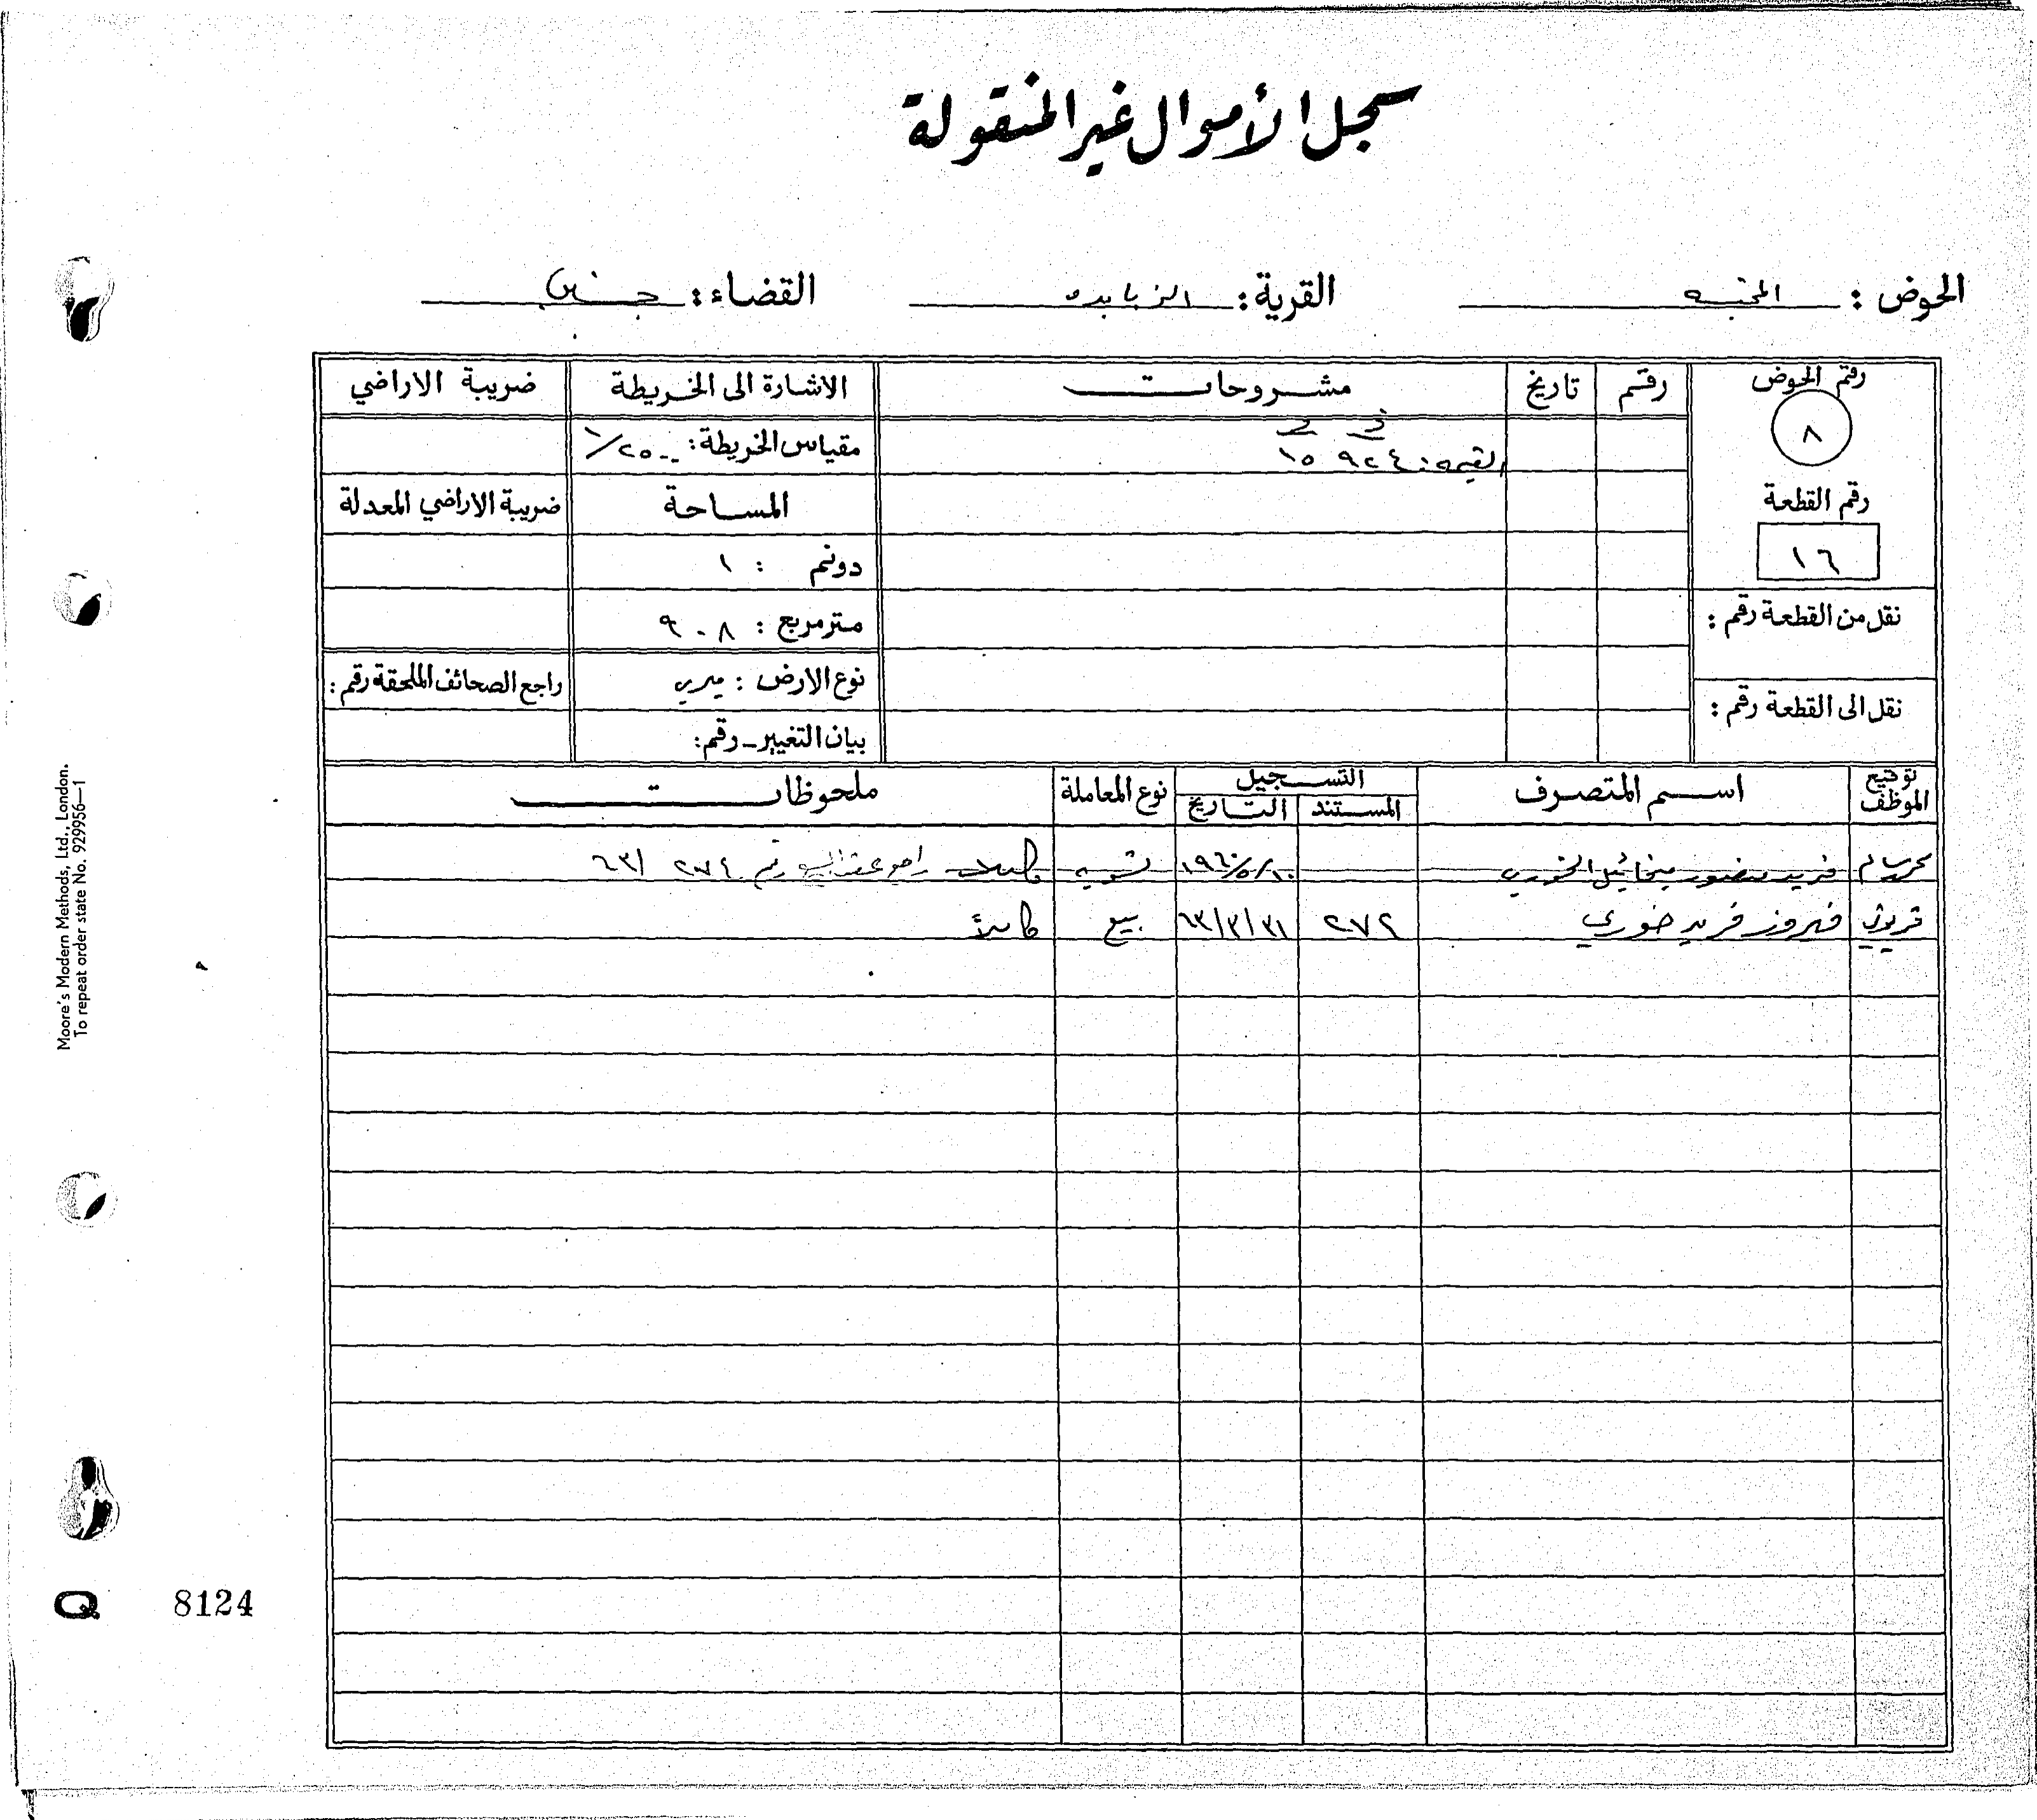 سجل الأموال غير المنقولة
الحوض : القرية : الزبابده القضاء : جنين
رقم الحوض رقم تاريخ مشروحات الاشارة الى الخريطة ضريبة الاراضي
٨ مقياس الخريطة : ١/٢٥٠٠
القيمة : ٩٢٤ ١٥
رقم القطعة المساحة ضريبة الاراضي المعدلة
١٦ دونم : ١
نقل من القطعة رقم : متر مربع : ٩٠٨
نوع الارض : ميري راجع الصحائف الملحقة رقم :
نقل الى القطعة رقم :
بيان التغيير - رقم :
توقيع الموظف اسم المتصرف التسجيل نوع المعاملة ملحوظات
المستند التاريخ
فريد منصور ميخائيل الخوري ١٩٦٠/٥/١٠ تسويه كاملا راجع عقد البيع رقم ٢٧٤ /٦٣
فيروز فريد خوري ٢٧٢ ٦٣/٣/٣١ بيع كاملاً
Moore's Modern Methods, Ltd., London.
To repeat order state No. 929956—1
Q 8124